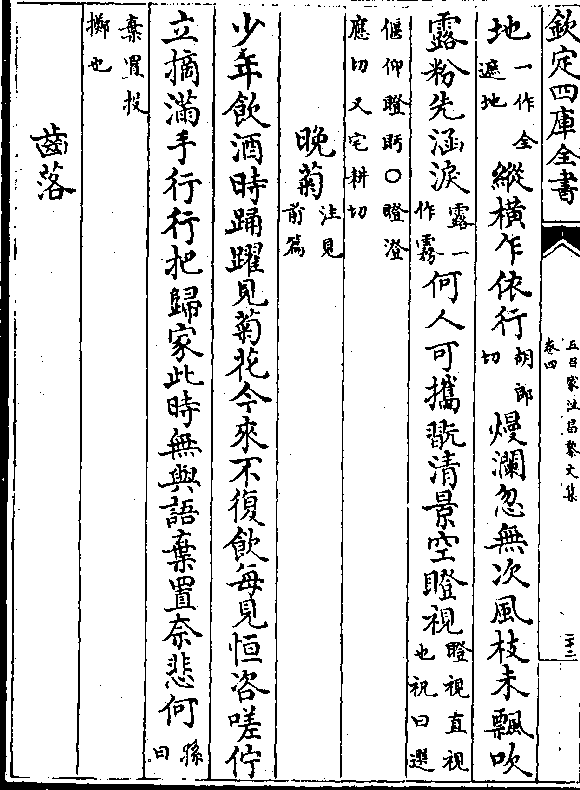 欽定四庫全書
五百家注昌黎文集
卷四
二十二
地一作全遮地縱横乍依行胡郎切熳瀾忽無次風枝未飄吹
露粉先涵淚露一作霧何人可攜翫清景空瞪視瞪視直視也祝曰選
偃仰瞪眄○瞪澄應切又宅耕切
晚菊注見前篇
少年飲酒時踊躍見菊花今來不復飲每見恒咨嗟佇
立摘滿手行行把歸家此時無與語棄置奈悲何孫曰
棄置投擲也
齒落